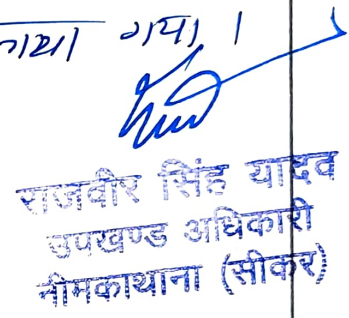 गया गया ।
राजवीर सिंह यादव
उपखण्ड अधिकारी
नीमकाथाना (सीकर)